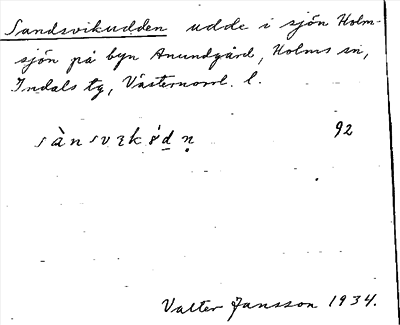 Sandsvikudden udde i sjön Holm-
sjön på byn Anundgård, Holms sn,
Indals tg, Västernorrl. l.
92
Valter Jansson 1934.